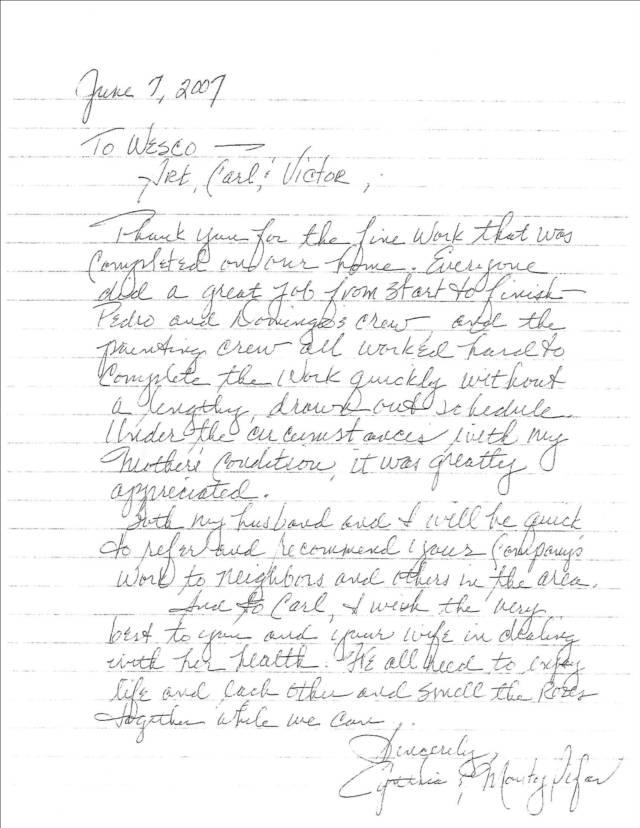 June 7, 2007
To Wesco —
Art, Carl, & Victor,
Thank you for the fine work that was
completed on our home. Everyone
did a great job from start to finish
Pedro and Domingo's crew, and the
painting crew all worked hard to
complete the work quickly without
a lengthy, drawn out schedule.
Under the circumstances with my
Mother's condition, it was greatly
appreciated.
Both my husband and I will be quick
to refer and recommend your Company's
work to neighbors and others in the area.
And to Carl, I wish the very
best to you and your wife in dealing
with her health. We all need to enjoy
life and each other and smell the Roses
together while we can.
Sincerely,
Cynthia & Monty